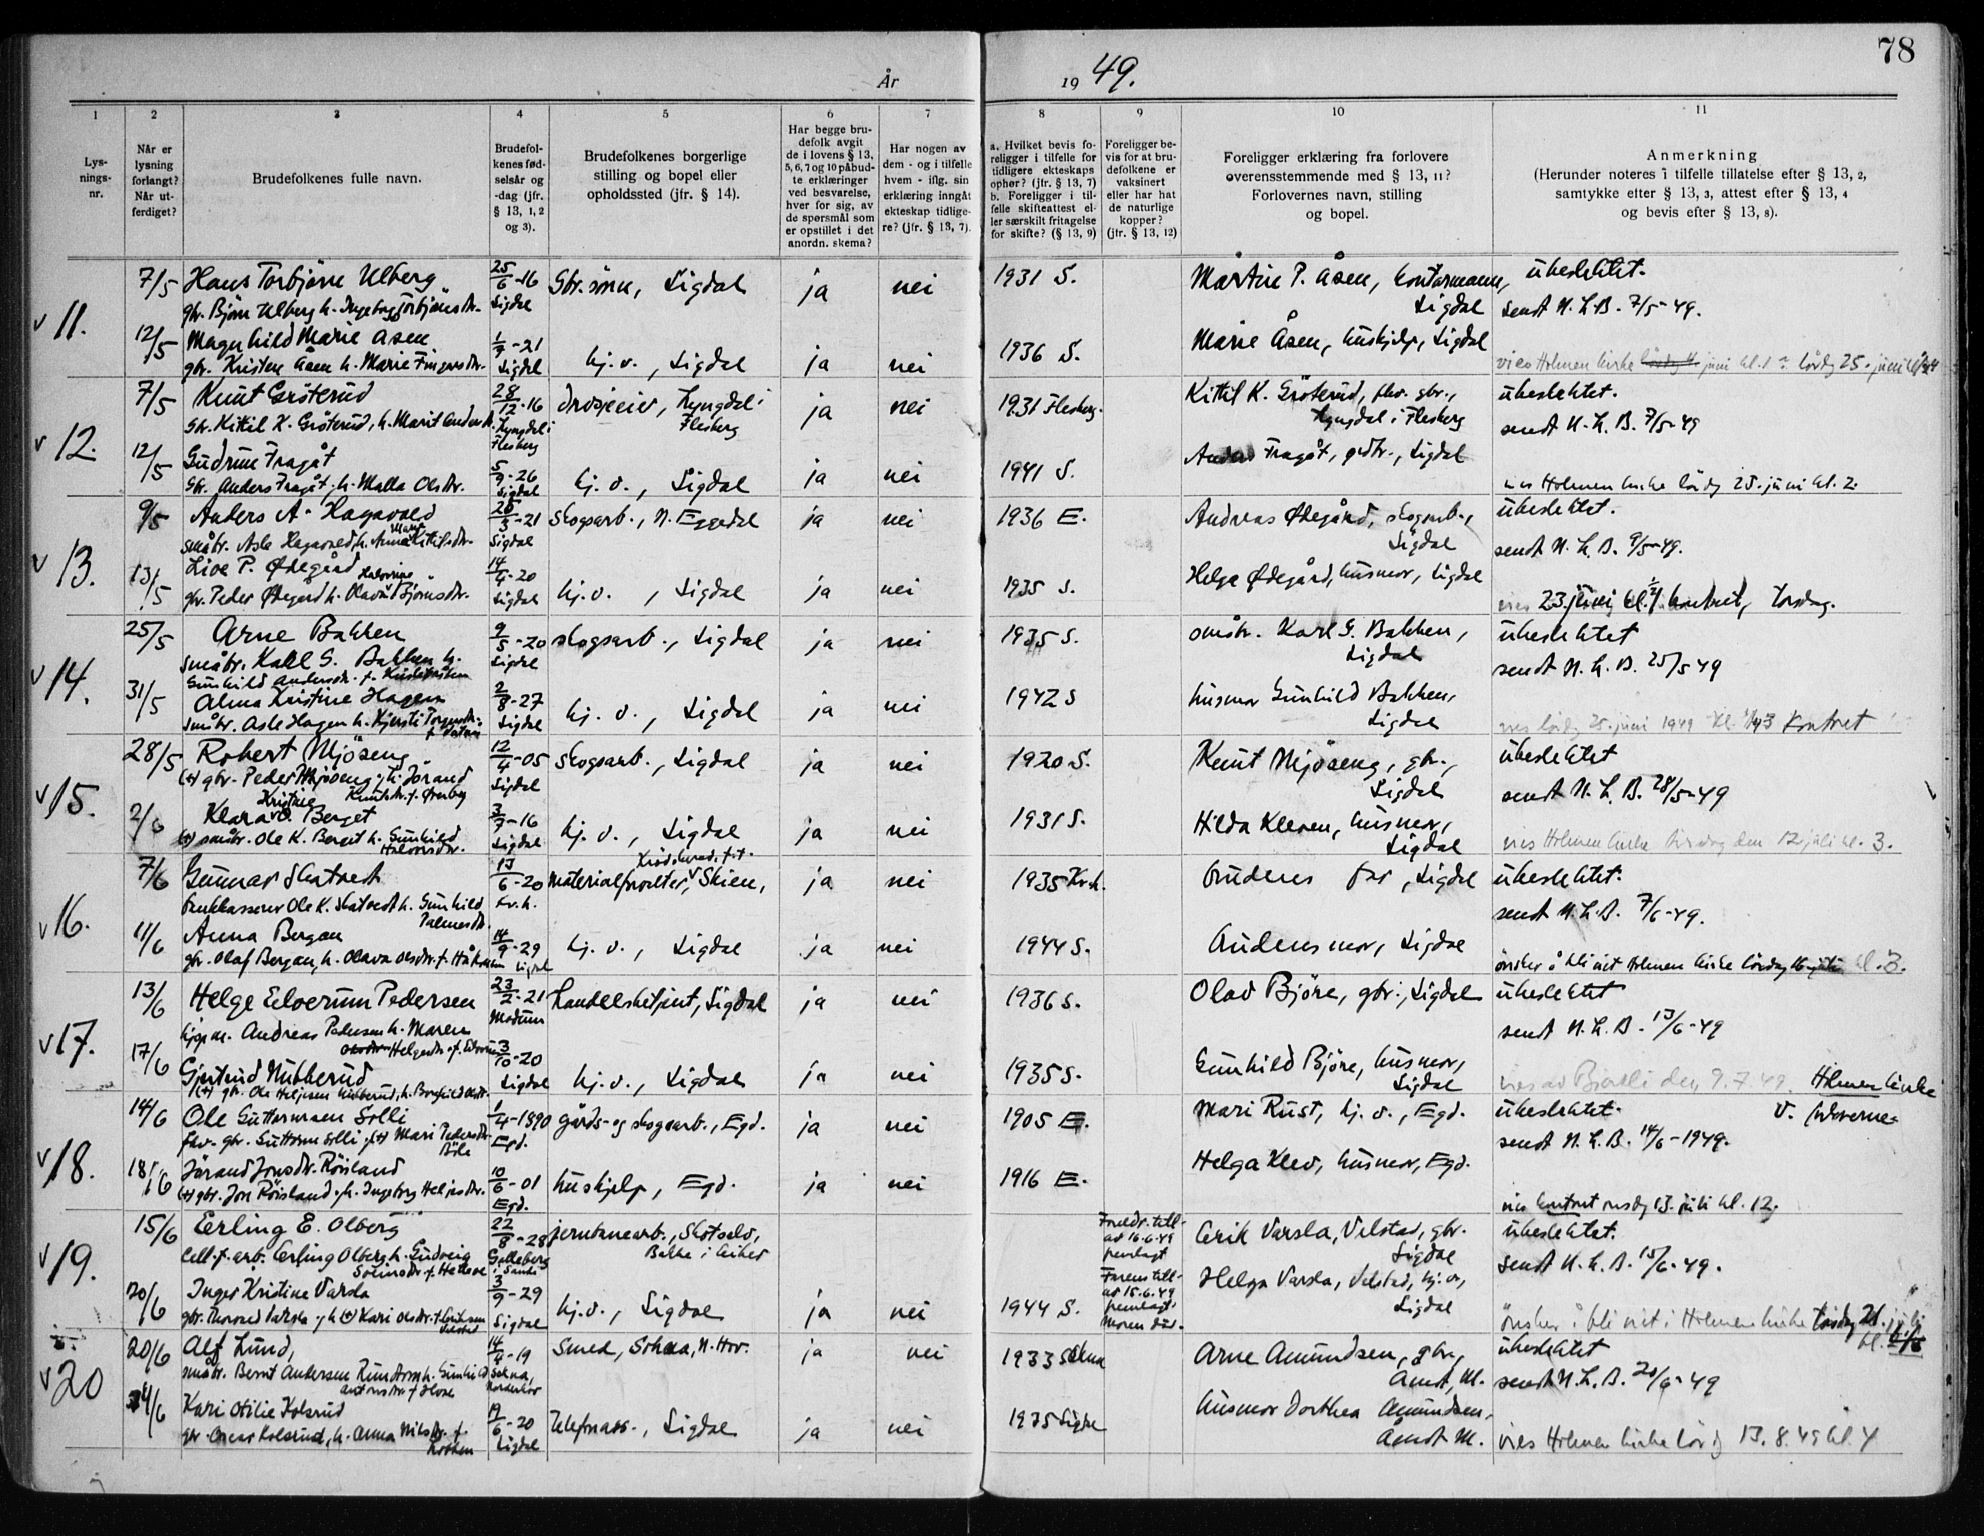 78
År 1949.
1 2 3 4 5 6 7 8 9 10 11
Lys-
nings-
nr.
Når er
lysning
forlangt?
Når ut-
ferdiget?
Brudefolkenes fulle navn.
Brudefol-
kenes fød-
selsår og
-dag (jfr.
§ 13, 1, 2
og 3).
Brudefolkenes borgerlige
stilling og bopel eller
opholdssted (jfr. § 14).
Har begge bru-
defolk avgit
de i lovens § 13,
5, 6, 7 og 10 påbud-
te erklæringer
ved besvarelse,
hver for sig, av
de spørsmål som
er opstillet i det
anordn. skema?
Har nogen av
dem - og i tilfelle
hvem - iflg. sin
erklæring inngåt
ekteskap tidlige-
re? (jfr. § 13, 7).
a. Hvilket bevis fo-
religger i tilfelle for
tidligere ekteskaps
ophør? (jfr. § 13, 7)
b. Foreligger i til-
felle skifteattest el-
ler særskilt fritagelse
for skifte? (§ 13, 9)
Foreligger be-
vis for at bru-
defolkene er
vaksinert
eller har hat
de naturlige
kopper?
(jfr. § 13, 12)
Foreligger erklæring fra forlovere
overensstemmende med § 13, 11?
Forlovernes navn, stilling
og bopel.
Anmerkning
(Herunder noteres i tilfelle tillatelse efter § 13, 2,
samtykke efter § 13, 3, attest efter § 13, 4
og bevis efter § 13, 8).
v 11.
7/5 Hans Torbjörn Ulberg 25/6-16 Sigdal Gbr.sönn, Sigdal ja nei 1931 S. Martin P. Åsen, kontormann, Sigdal ubeslektet.
gbr. Björn Ulberg h. Ingeborg Torbjörnsdr. sendt N.L.B. 7/5-49.
12/5 Magnhild Marie Åsen 1/9-21 Sigdal hj.v., Sigdal ja nei 1936 S. Marie Åsen, hushjelp, Sigdal
gbr. Kristen Åsen h. Marie Fingarsdr. vies Holmen kirke lørdg 25. juni
v 12.
7/5 Knut Gröterud 28/12-16 Lyngdal i Flesberg drosjeeier, Lyngdal i Flesberg ja nei 1931 Flesberg. Kittil K. Gröterud, fhv. gbr., Lyngdal i Flesberg ubeslektet.
Gbr. Kittil K. Gröterud, h. Marit Andersdr. sendt N.L.B. 7/5-49
12/5 Gudrun Fragåt 5/9-26 Sigdal hj.v., Sigdal ja nei 1941 S. Anders Fragåt, grdbr., Sigdal
Gbr. Anders Fragåt, h. Malla Olsdr. vies Holmen kirke lördg 25. juni kl. 2.
v 13.
9/5 Anders A. Hagavold 26/3-21 Sigdal skogsarb., N. Eggedal ja nei 1936 E. Andreas Ødegård, skogsarb., Sigdal ubeslektet.
småbr. Asle Hagavold h. Anna Marie Kittilsdr. sendt N.L.B. 9/5-49.
13/5 Live P. Ødegård 14/4-20 Sigdal hj.v., Sigdal ja nei 1935 S. Helga Ødegård, husmor, Sigdal
gbr. Peder Ødegård h. Olava Halvorine Björnsdr. vies 23. juni kl. kontoret, torsdag.
v 14.
25/5 Arne Bakken 9/5-20 Sigdal skogsarb., Sigdal ja nei 1935 S. småbr. Karl G. Bakken, Sigdal ubeslektet
småbr. Karl G. Bakken h. sendt N.L.B. 25/5 49
Gunhild Andersdr. f.
31/5 Alma Kristine Hagen 2/8-27 Sigdal hj.v., Sigdal ja nei 1942 S husmor Gunhild Bakken, Sigdal
småbr. Asle Hagen h. Kjersti Torgersdr. vies lördg 25. juni 1949 kl. kontoret
v 15.
28/5 Robert Mjöseng 12/4-05 Sigdal Skogsarb., Sigdal ja nei 1920 S. Knut Mjöseng, gbr., Sigdal ubeslektet
(+) gbr. Peder Mjöseng, h. Jörand Knutsdr. f. sendt N.L.B. 28/5-49
2/6 Klara Kristine O. Berget 3/7-16 Sigdal hj.v., Sigdal ja nei 1931 S. Hilda Kleven, husmor, Sigdal
(+) småbr. Ole K. Berget h. Gunhild Halvorsdr. vies Holmen kirke tirsdag den 12 juli kl. 3.
v 16.
7/6 Gunnar Skatvedt 17/6-20 Kr.h. materialforvalter, Skien, Krödsherad f.t. ja nei 1935 Kr.h. brudens far, Sigdal ubeslektet.
bankkasserer Ole K. Skatvedt h. Gunhild Palmesdr. sendt N.L.B. 7/6-49.
11/6 Anna Bergan 14/9-29 Sigdal hj.v., Sigdal ja nei 1944 S. Brudens mor, Sigdal
gbr. Olaf Bergan, h. Olava Olsdr. f. önsker å bli viet Holmen kirke lördag 16 juli kl. 3.
v 17.
13/6 Helge Elverum Pedersen 23/2-21 Modum handelsbetjent, Sigdal ja nei 1936 S. Olav Björe, gbr., Sigdal ubeslektet
Andreas Pedersen h. Maren Helgesdr. f. sendt N.L.B. 13/6-49
17/6 Gjertrud Nubberud 3/10-20 Sigdal hj.v., Sigdal ja nei 1935 S. Gunhild Björe, husmor, Sigdal
(+) gbr. Ole Heljesen Nubberud, h. vies av Björkli den 9.7.49. Holmen kirke
v 18.
14/6 Ole Guttormsen Solli 1/4-1890 Egd. gårds- og skogsarb., Egd. ja nei 1905 E. Mari Rust, hj.v., Egd. ubeslektet.
fhv. gbr. Guttorm Solli, (+) Mari Pedersdr. Böle sendt N.L.B. 14/6-1949.
18/6 Jörand Jonsdr. Röisland 10/6-01 Egd. hushjelp, Egd. ja nei 1916 E. Helga Klev, husmor, Egd.
(+) gbr. Jon Röisland, h. Ingeborg Heljesdr. vies kontoret onsdg 13. juli kl. 12.
v 19.
15/6 Erling E. Olberg 22/8-28 Galleberg i Sande jernbanearb., Skotselv, Bakke i Eiker Foreldr. till. av 16.6.49 fremlagt Erik Varsla, Velstad, gbr. Sigdal ubeslektet.
cell.f. arb. Erling Olberg h. Gudveig sendt N.L.B. 15/6-49.
20/6 Inger Kristine Varsla 3/9-29 Sigdal hj.v., Sigdal ja nei 1944 S. Farens till. av 15.6.49 fremlagt. Moren död. Helga Varsla, Velstad, hj.v., Sigdal
gbr. Torvald Varsla, h. (+) Kari Olsdr. önsker å bli viet i Holmen kirke
v 20
20/6 Alf Lund, 14/4-19 Sokna, Norderhov Smed, Sokna, N.Hov. ja nei 1933 Sokna Arne Amundsen, gbr., Åmot, M. ubeslektet
småbr. Bernt Andersen h. Gunhild sendt N.L.B. 20/6-49
24/6 Kari Otilie Kolsrud 19/6-20 Sigdal Telefonass., Sigdal ja nei 1935 Sigdal husmor Dorthea Amundsen, Åmot M.
gbr. Oscar Kolsrud, h. Anna Nilsdr. f. vies Holmen kirke lördg 13.8.49 kl. 4